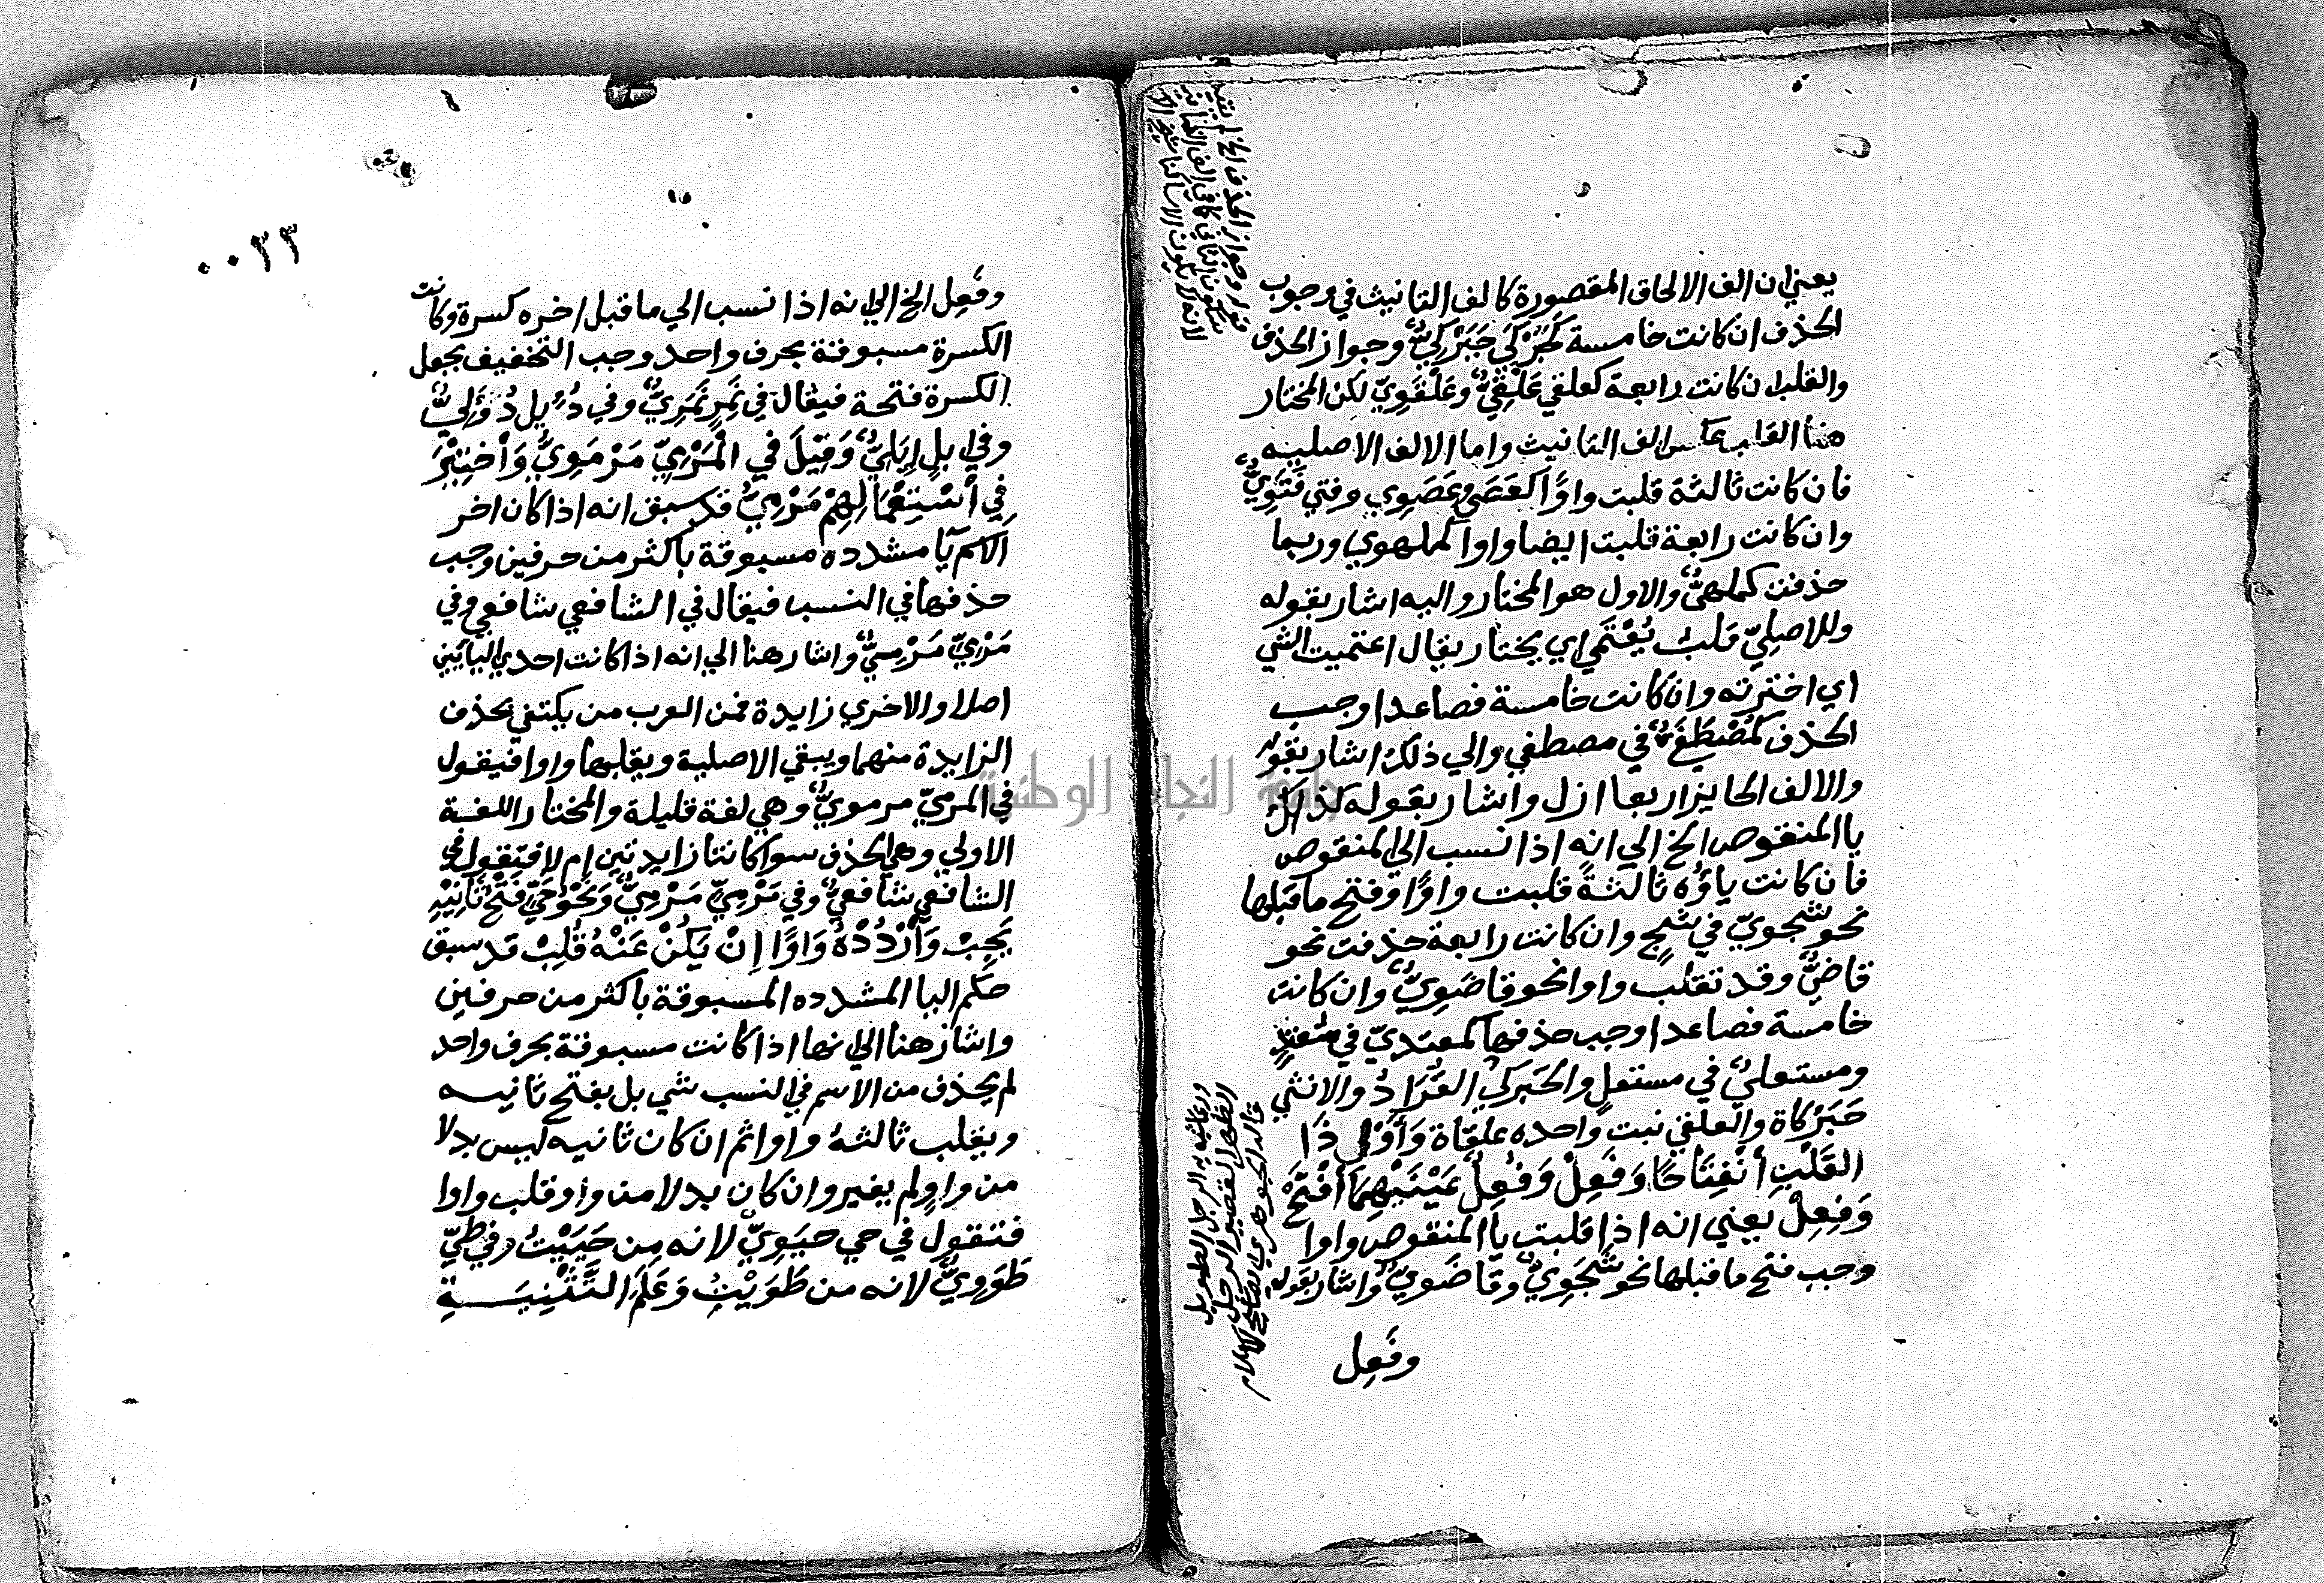 يعني ان الف الالحاق المقصورة كالف التانيث في وجوب
الحذف ان كانت خامسة كَحَبَرْكَي حَبَرْكِيٌّ وجواز الحذف
والقلب ان كانت رابعة كعلقي عَلْقِيٌّ وعَلْقَوِيّ لكن المختار
هنا القلب عكس الف التانيث واما الالف الاصليه
فان كانت ثالثة قلبت واوًا كعَصَي وعَصَوِي وفتي فَتَوِيٌّ
وان كانت رابعة قلبت ايضا واوا كملهوي وربما
حذفت كملهيٌّ والاول هو المختار واليه اشار بقوله
وللاصليّ قلبٌ يُعْتَمَي اي يختار يقال اعتميت الشي
اي اخترته وان كانت خامسة فصاعدا وجب
الحذف كمُصْطَفِيٌّ في مصطفي والي ذلك اشار بقوله
والالف الحايز اربعا ازل واشار بقوله كذاك
يا المنقوص الخ الي انه اذا نسب الي المنقوص
فان كانت ياؤه ثالثةً قلبت واوًا وفتح ما قبلها
نحو شجويّ في شجٍ وان كانت رابعة حذفت نحو
قاضيٌّ وقد تقلب واوا نحو قاضَوِيٌّ وان كانت
خامسة فصاعدا وجب حذفها كمعتديّ في معتدٍ
ومستعليٌّ في مستعلٍ والحَبركيُ القُرَادُ والانثي
حَبَرْكاة والعلقي نبت واحده علقاة وَأَوْلِ ذَا
القَلْبِ أنْفِتَاحًا وَفَعِلْ وَفُعِلٌ عَيْنَيْهِمَا أفْتَحْ
وَفِعِلْ يعني انه اذا قلبت يا المنقوص واوا
وجب فتح ما قبلها نحو شَجَوِيٌّ وقاضَوِيٌّ واشار بقوله
وفَعِل
٠٠٣٣
وفَعِل الخ الي انه اذا نسب الي ما قبل اخره كسرة وكانت
الكسرة مسبوقة بحرف واحد وجب التخفيف بجعل
الكسرة فتحة فيقال في نَمِرٍ نَمَرِيٌّ وفي دُئِل دُؤَلِيٌّ
وفي ابل إبَلِيٌّ وَقِيلَ في الْمَرْمِيّ مَرْمَوِيٌّ وَأخْتِيْرَ
فِي أسْتِعْمَالِهِمْ مَرْمِيُّ قد سبق انه اذا كان اخر
الاسم يا مشدده مسبوقة باكثر من حرفين وجب
حذفها في النسب فيقال في الشافعي شافعي وفي
مَرْمِيّ مَرْمِيٌّ واشار هنا الي انه اذا كانت احدي اليائين
اصلا والاخري زايدة فمن العرب من يكتفي بحذف
الزايدة منهما ويبقي الاصلية ويقلبها واوا فيقول
في المرميّ مرمويٌّ وهي لغة قليلة والمختار اللغة
الاولي وهي الحذف سوا كانتا زايدتين ام لا فيقول في
الشافعي شافعيٌّ وفي مَرْمِيّ مَرْمِيٌّ وَنَحْوُ حَيٍّ فَتْحُ ثَانِيْهِ
يَجِبْ وَأرْدُدْهُ وَاوًا إِنْ يَكُنْ عَنْهُ قُلِبْ قد سبق
حكم اليا المشدده المسبوقة باكثر من حرفين
واشار هنا الي انها اذا كانت مسبوقة بحرف واحد
لم يحذف من الاسم في النسب شي بل يفتح ثانيه
ويقلب ثالثهُ واوا ثم ان كان ثانيه ليس بدلا
من واوٍ لم يغير وان كان بدلا من واو قلب واوا
فتقول في حي حيَوِيٌّ لانه من حَيَيْتُ وفي طَيّ
طَوَوِيٌّ لانه من طَوَيْتُ وَعَلَمَ التَّثْنِيَةِ